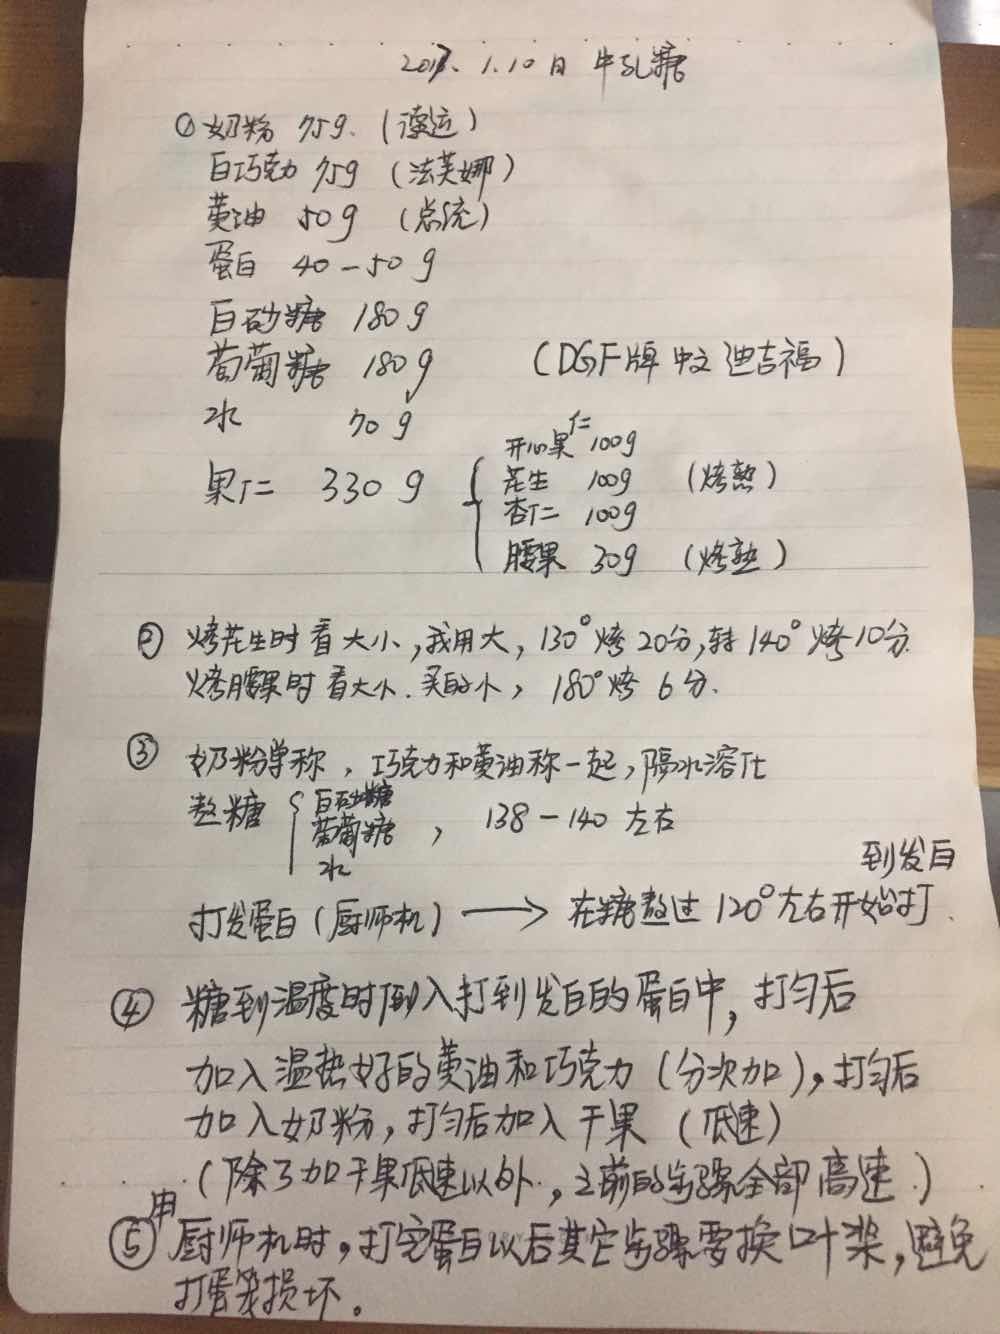 2017. 1.10日 牛轧糖
① 奶粉 75g. (漂运)
白巧克力 75g (法芙娜)
黄油 50g (总统)
蛋白 40-50g
白砂糖 180g
葡萄糖 180g (DGF牌 中文 迪吉福)
水 70g
果仁 330g
开心果仁 100g
花生 100g (烤熟)
杏仁 100g
腰果 30g (烤熟)
② 烤花生时看大小,我用大,130°烤20分,转140°烤10分.
烤腰果时看大小.买的小,180°烤6分.
③ 奶粉单称,巧克力和黄油称一起,隔水溶化
熬糖 白砂糖
葡萄糖 , 138-140左右
水
到发白
打发蛋白(厨师机) → 在糖熬过120°左右开始打.
④ 糖到温度时倒入打到发白的蛋白中,打匀后
加入温热好的黄油和巧克力(分次加),打匀后
加入奶粉,打匀后加入干果(低速)
(除了加干果低速以外,之前的步骤全部高速.)
⑤ 用厨师机时,打完蛋白以后其它步骤要换叶桨,避免
打蛋笼损坏。